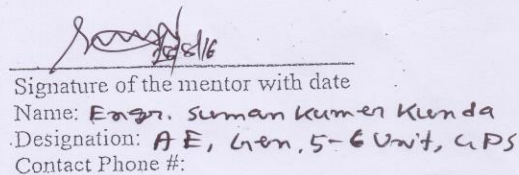 Signature of the mentor with date
Name: Engr. Suman Kumer Kunda
Designation: AE, Gen, 5-6 Unit, GPS
Contact Phone #: